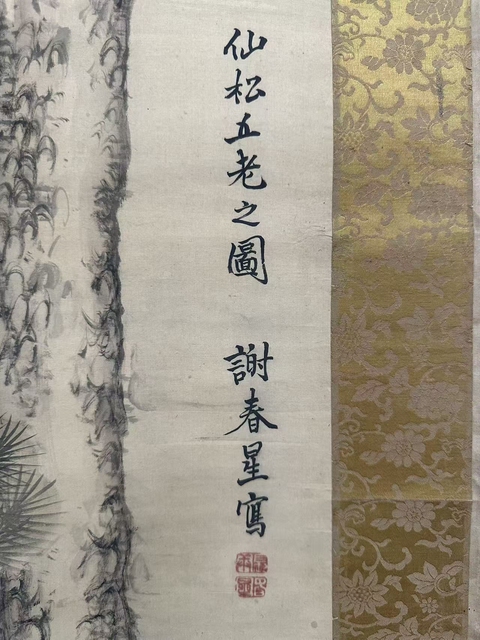 仙松五老之圖　謝春星寫